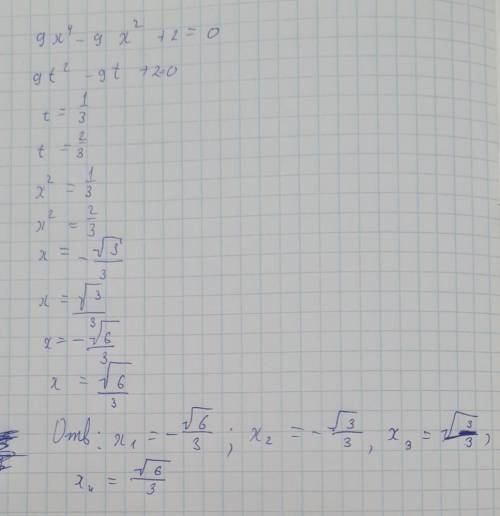 9x⁴ - 9x² + 2 = 0
9t² - 9t + 2=0
t = 1/3
t = 2/3
x² = 1/3
x² = 2/3
x = -√3/3
x = √3/3
x = -√6/3
x = √6/3
Отв: x₁ = -√6/3; x₂ = -√3/3, x₃ = √3/3,
x₄ = √6/3